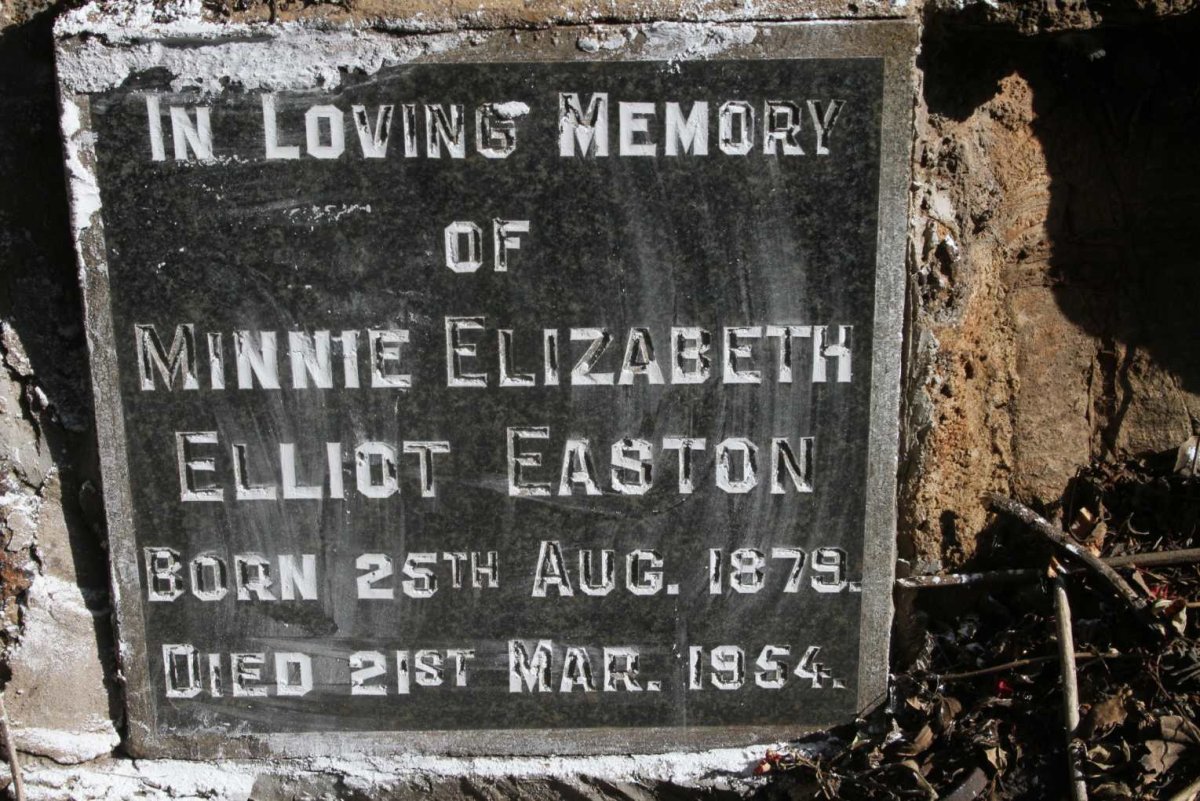 In Loving Memory
of
Minnie Elizabeth
Elliot Easton
Born 25th Aug. 1879.
Died 21st Mar. 1954.